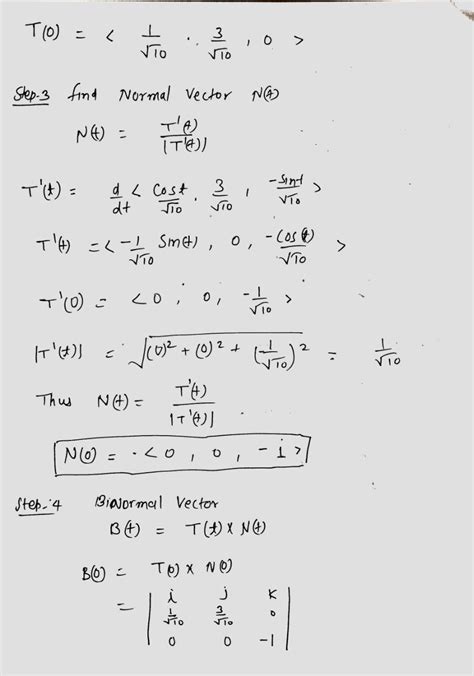 T(0) = < 1/√10 , 3/√10 , 0 >
Step-3 find Normal Vector N(t)
N(t) = T'(t) / |T'(t)|
T'(t) = d/dt < Cost/√10 , 3/√10 , -Sint/√10 >
T'(t) = < -1/√10 Sin(t) , 0 , -Cos(t)/√10 >
T'(0) = < 0 , 0 , -1/√10 >
|T'(t)| = √((0)² + (0)² + (1/√10)²) = 1/√10
Thus N(t) = T'(t) / |T'(t)|
N(0) = <0 , 0 , -1>
Step-4 Binormal Vector
B(t) = T(t) x N(t)
B(0) = T(0) x N(0)
= | i j k
1/√10 3/√10 0
0 0 -1 |